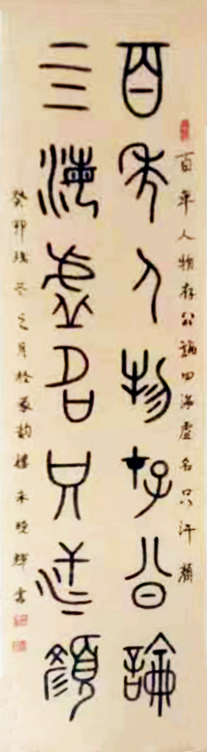 百年人物存公論四海虛名只汗顏
百年人物存公論
亖海虛名只汗顏
癸卯冬之月於韵樓朱曉輝書